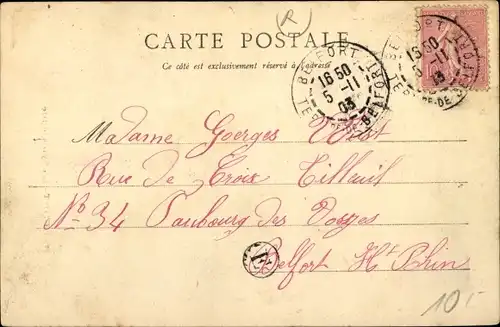 R
CARTE POSTALE
Ce côté est exclusivement réservé à l'adresse
BELFORT
16 50
5 -11
03
TERRRE-DE-BELFORT
BELFORT
16 50
5 -11
03
Madame Goerges Wist
Rue de Croix Tilleuil
No 34 Faubourg des Vosges
Belfort Ht Rhin
10.-